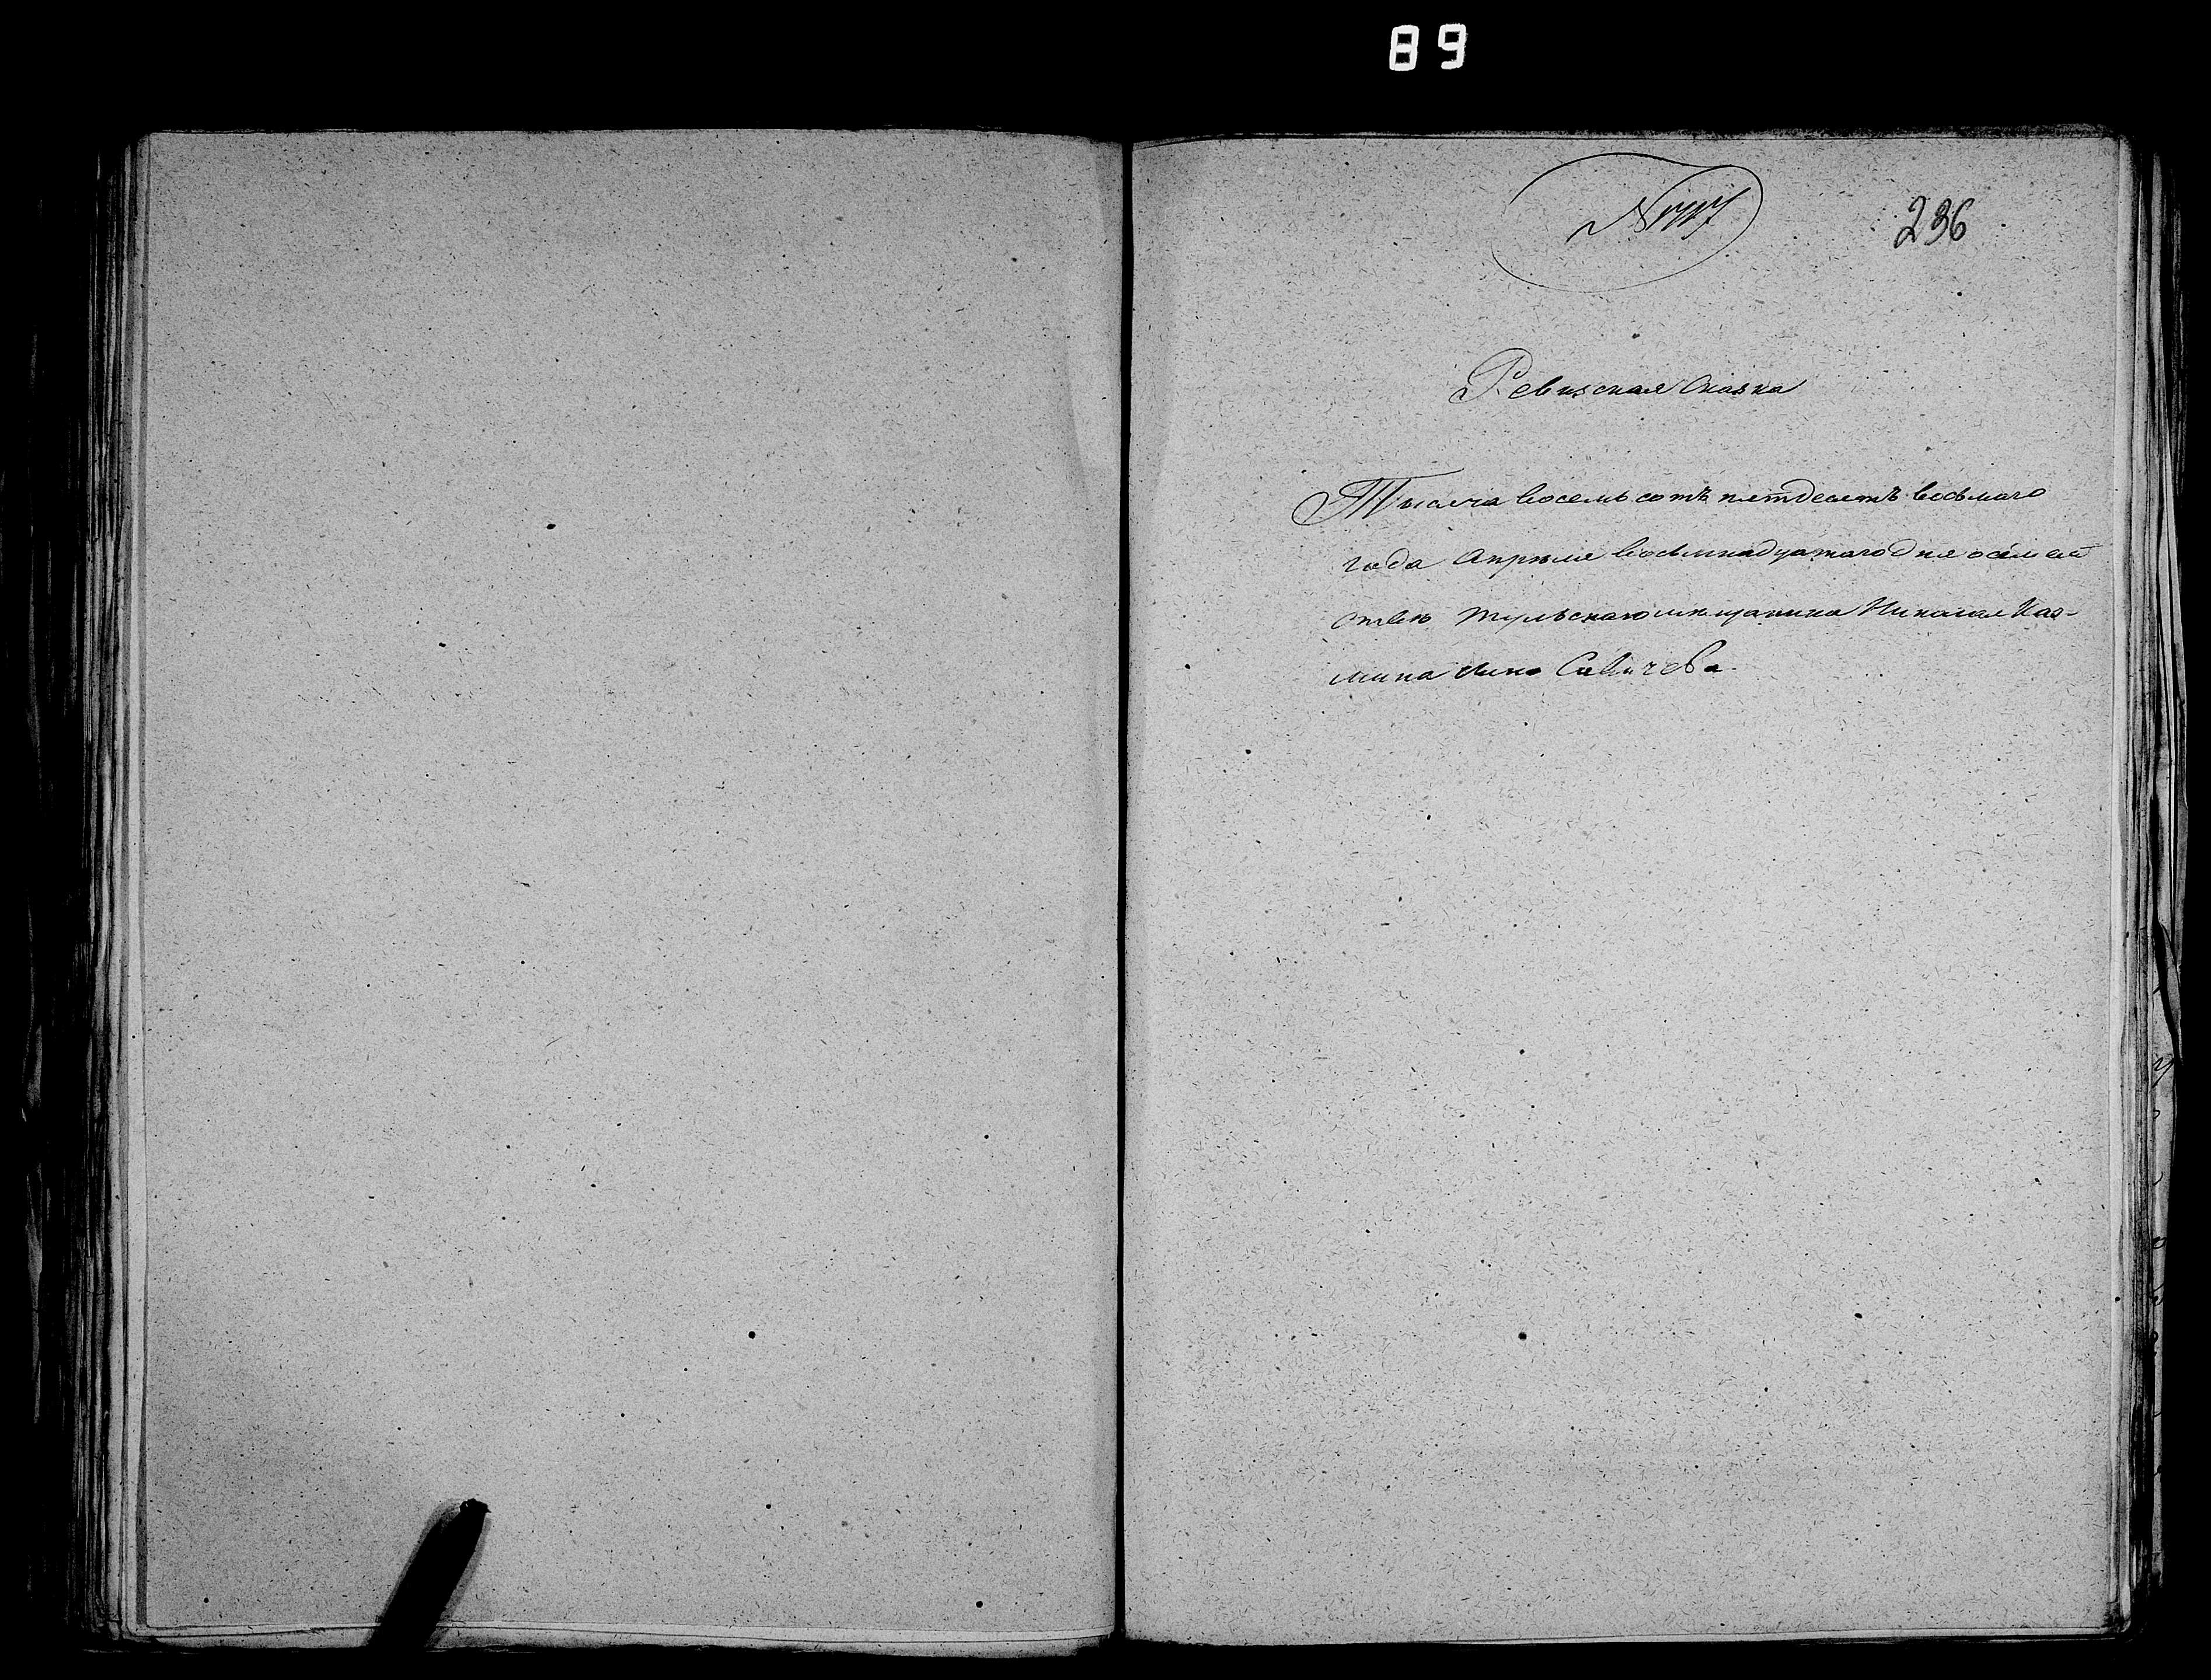 89
236
Ревизская Сказка
Тысяча восемь сотъ пятдесятъ восьмаго
года Апреля восемнадцатаго дня о семей
ствѣ Тульскаго мѣщанина Николая Коз-
мина Савичева.